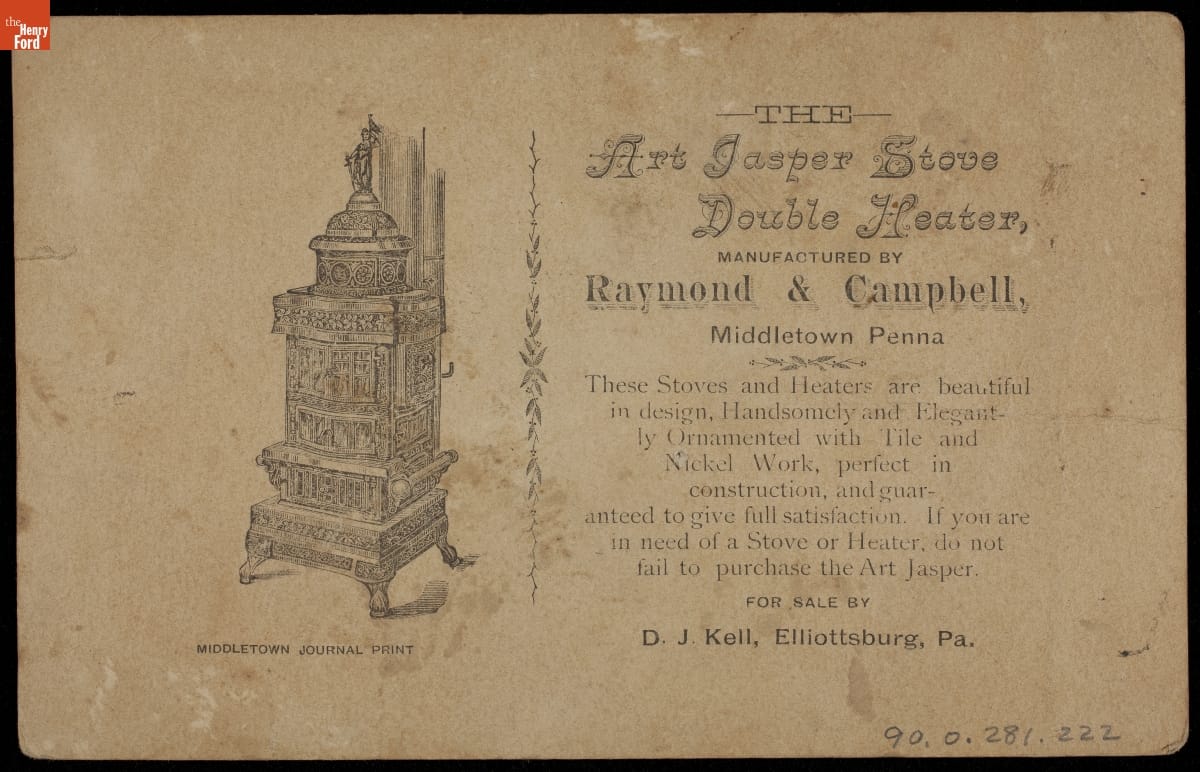 the
Henry
Ford
THE
Art Jasper Stove
Double Heater,
MANUFACTURED BY
Raymond & Campbell,
Middletown Penna
These Stoves and Heaters are beautiful
in design, Handsomely and Elegant-
ly Ornamented with Tile and
Nickel Work, perfect in
construction, and guar-
anteed to give full satisfaction. If you are
in need of a Stove or Heater, do not
fail to purchase the Art Jasper.
FOR SALE BY
D. J. Kell, Elliottsburg, Pa.
MIDDLETOWN JOURNAL PRINT
90.0.281.222